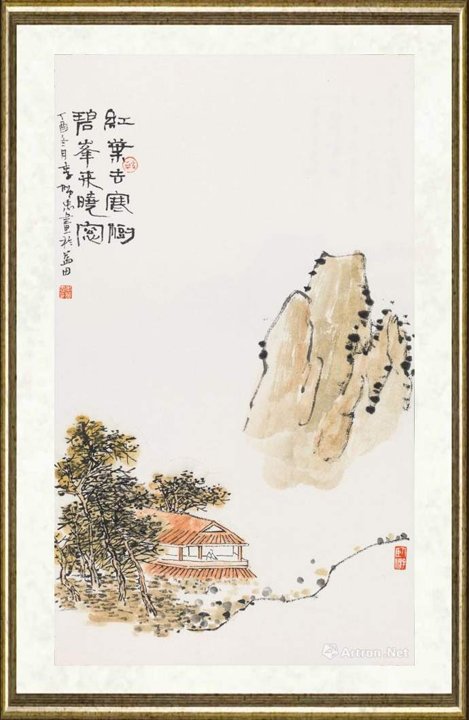 紅葉去寒樹
碧峯来曉窓
丁酉冬月李忠畫於益田
Artron.Net